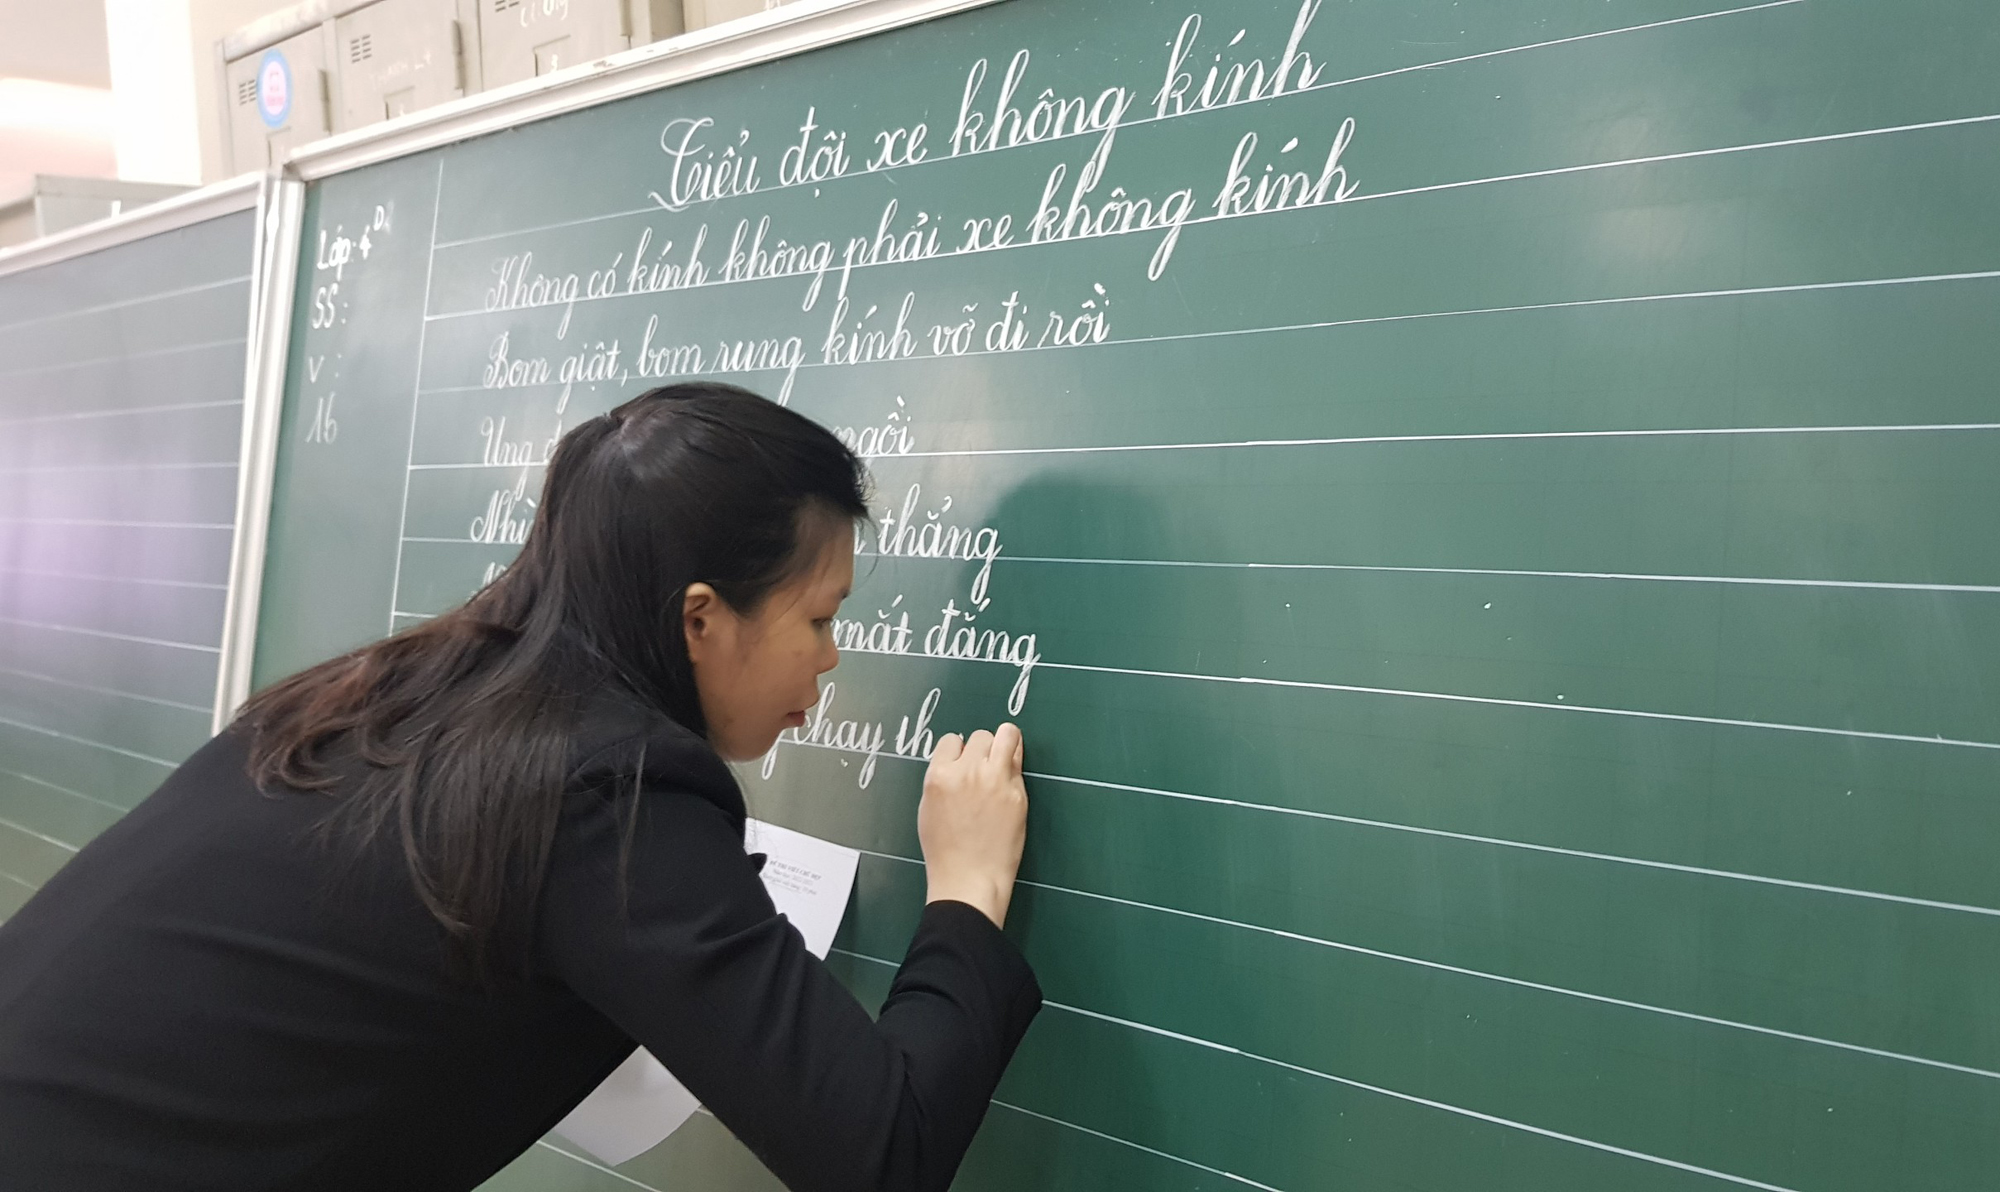 Tiểu đội xe không kính
Không có kính không phải xe không kính
Bom giật, bom rung kính vỡ đi rồi
Ung ngồi
Nhì thẳng
mắt đắng
chạy th
Lớp: 4D
SS:
V :
16